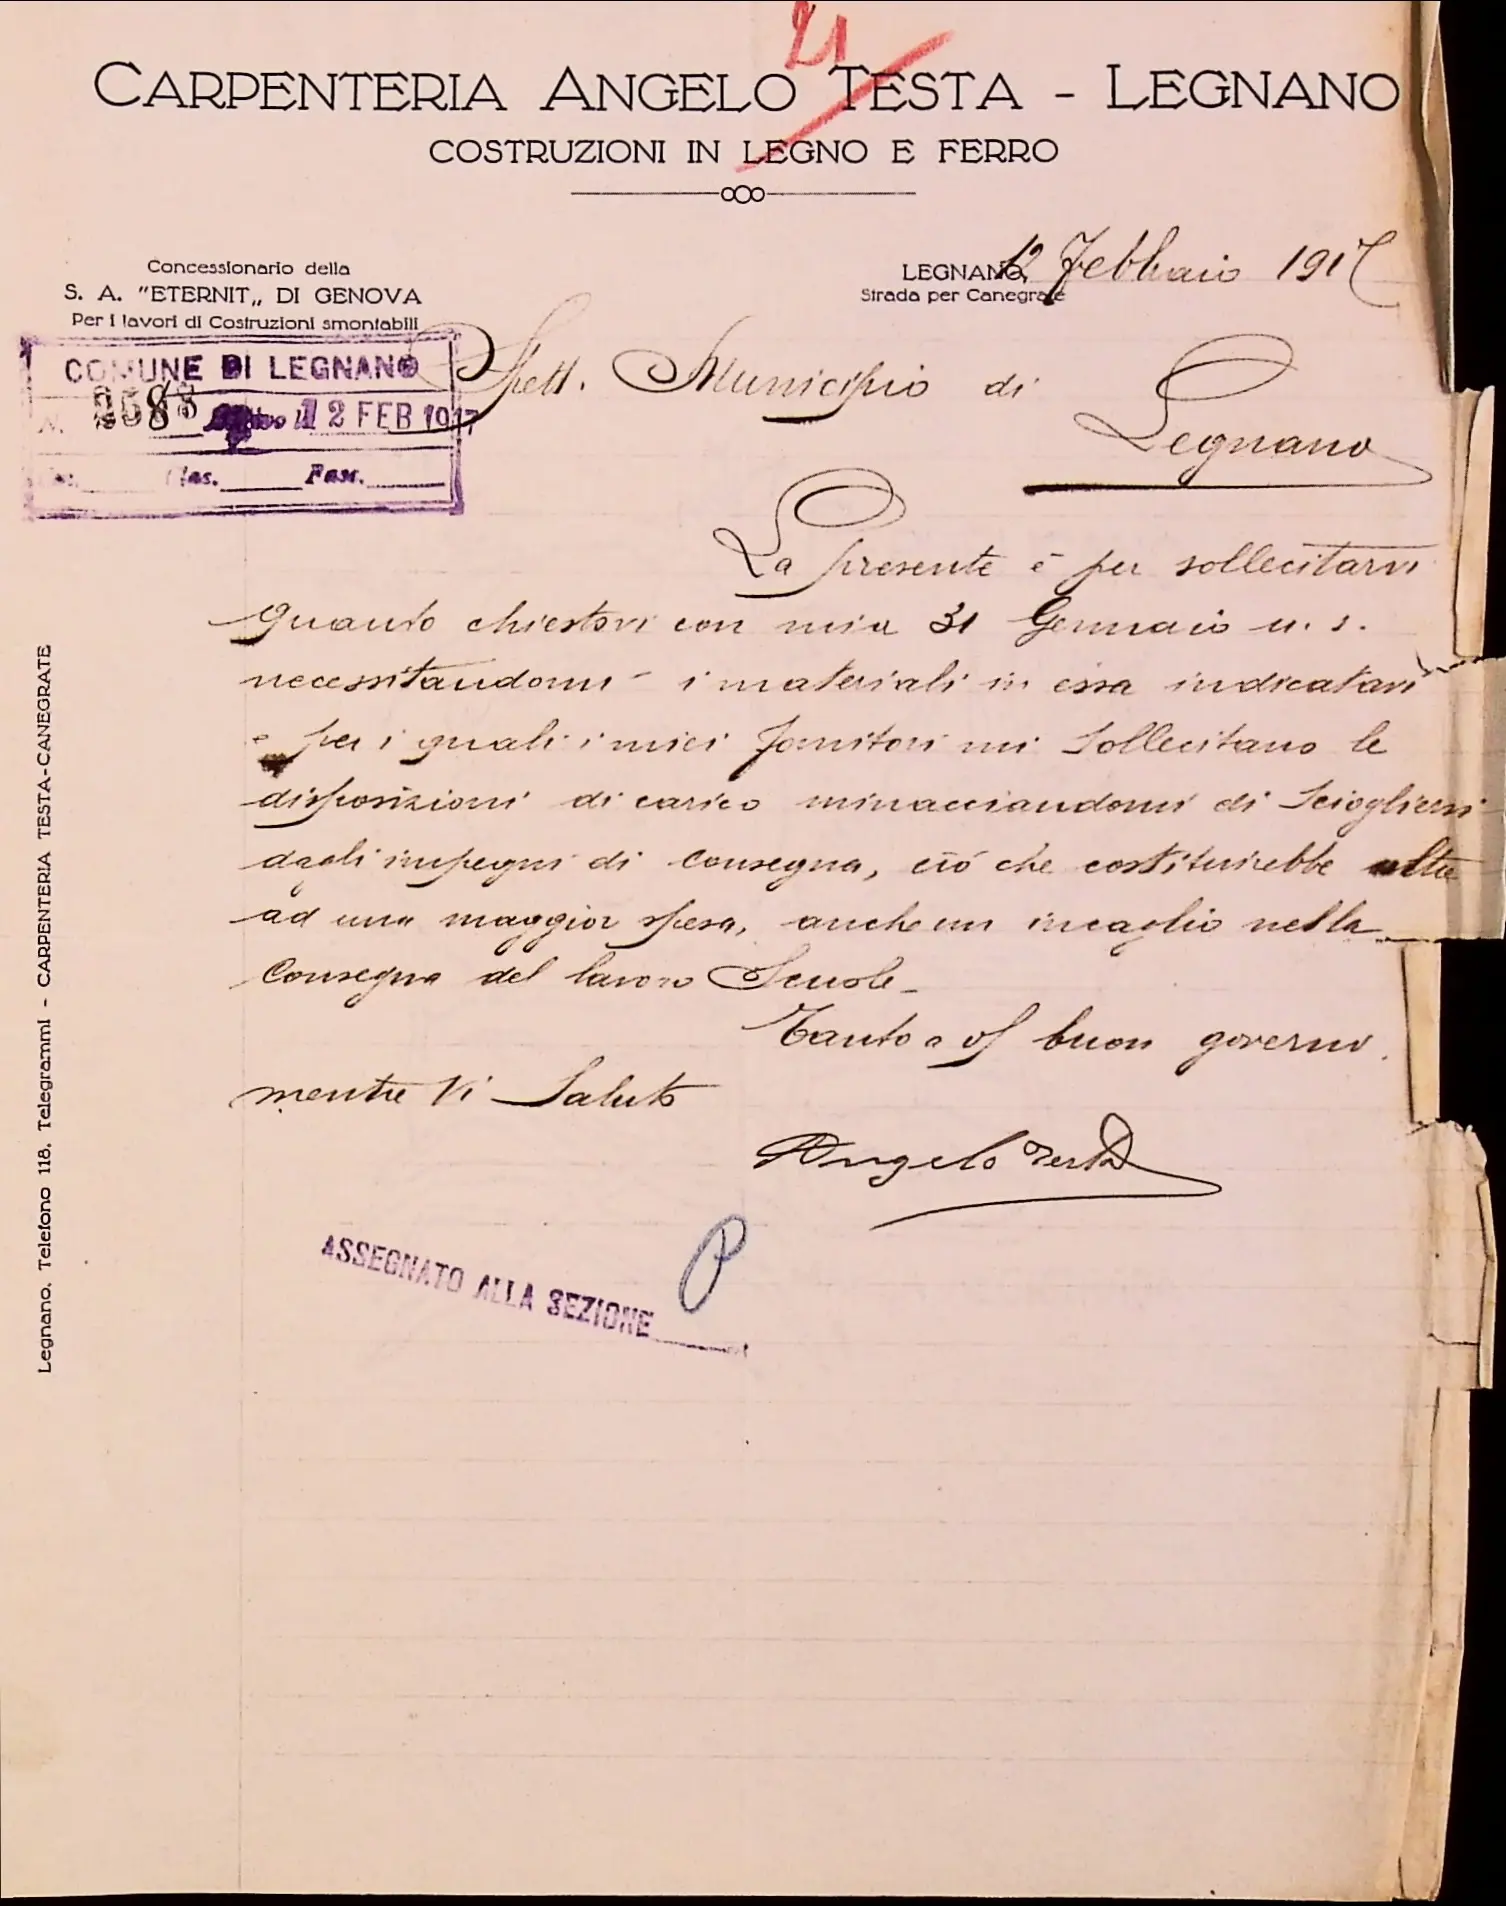 21
CARPENTERIA ANGELO TESTA - LEGNANO
COSTRUZIONI IN LEGNO E FERRO
Concessionario della
S. A. "ETERNIT„ DI GENOVA
Per i lavori di Costruzioni smontabili
LEGNANO, 12 Febbraio 1917
Strada per Canegrate
COMUNE DI LEGNANO
N. 12 FEB 1917
Clas. Fasc.
Spett. Municipio di
Legnano
La presente è per sollecitarvi
quanto chiestovi con mia 31 Gennaio u. s.
necessitandomi i materiali in essa indicatavi
e per i quali i miei fornitori mi sollecitano le
disposizioni di carico minacciandomi di sciogliersi
dagli impegni di consegna, ciò che costituirebbe oltre
ad una maggior spesa, anche un incaglio nella
consegna del lavoro Scuole -
Tanto a vs buon governo.
mentre Vi Saluto
Angelo Testa
ASSEGNATO ALLA SEZIONE
Legnano. Telefono 118. Telegrammi - CARPENTERIA TESTA-CANEGRATE